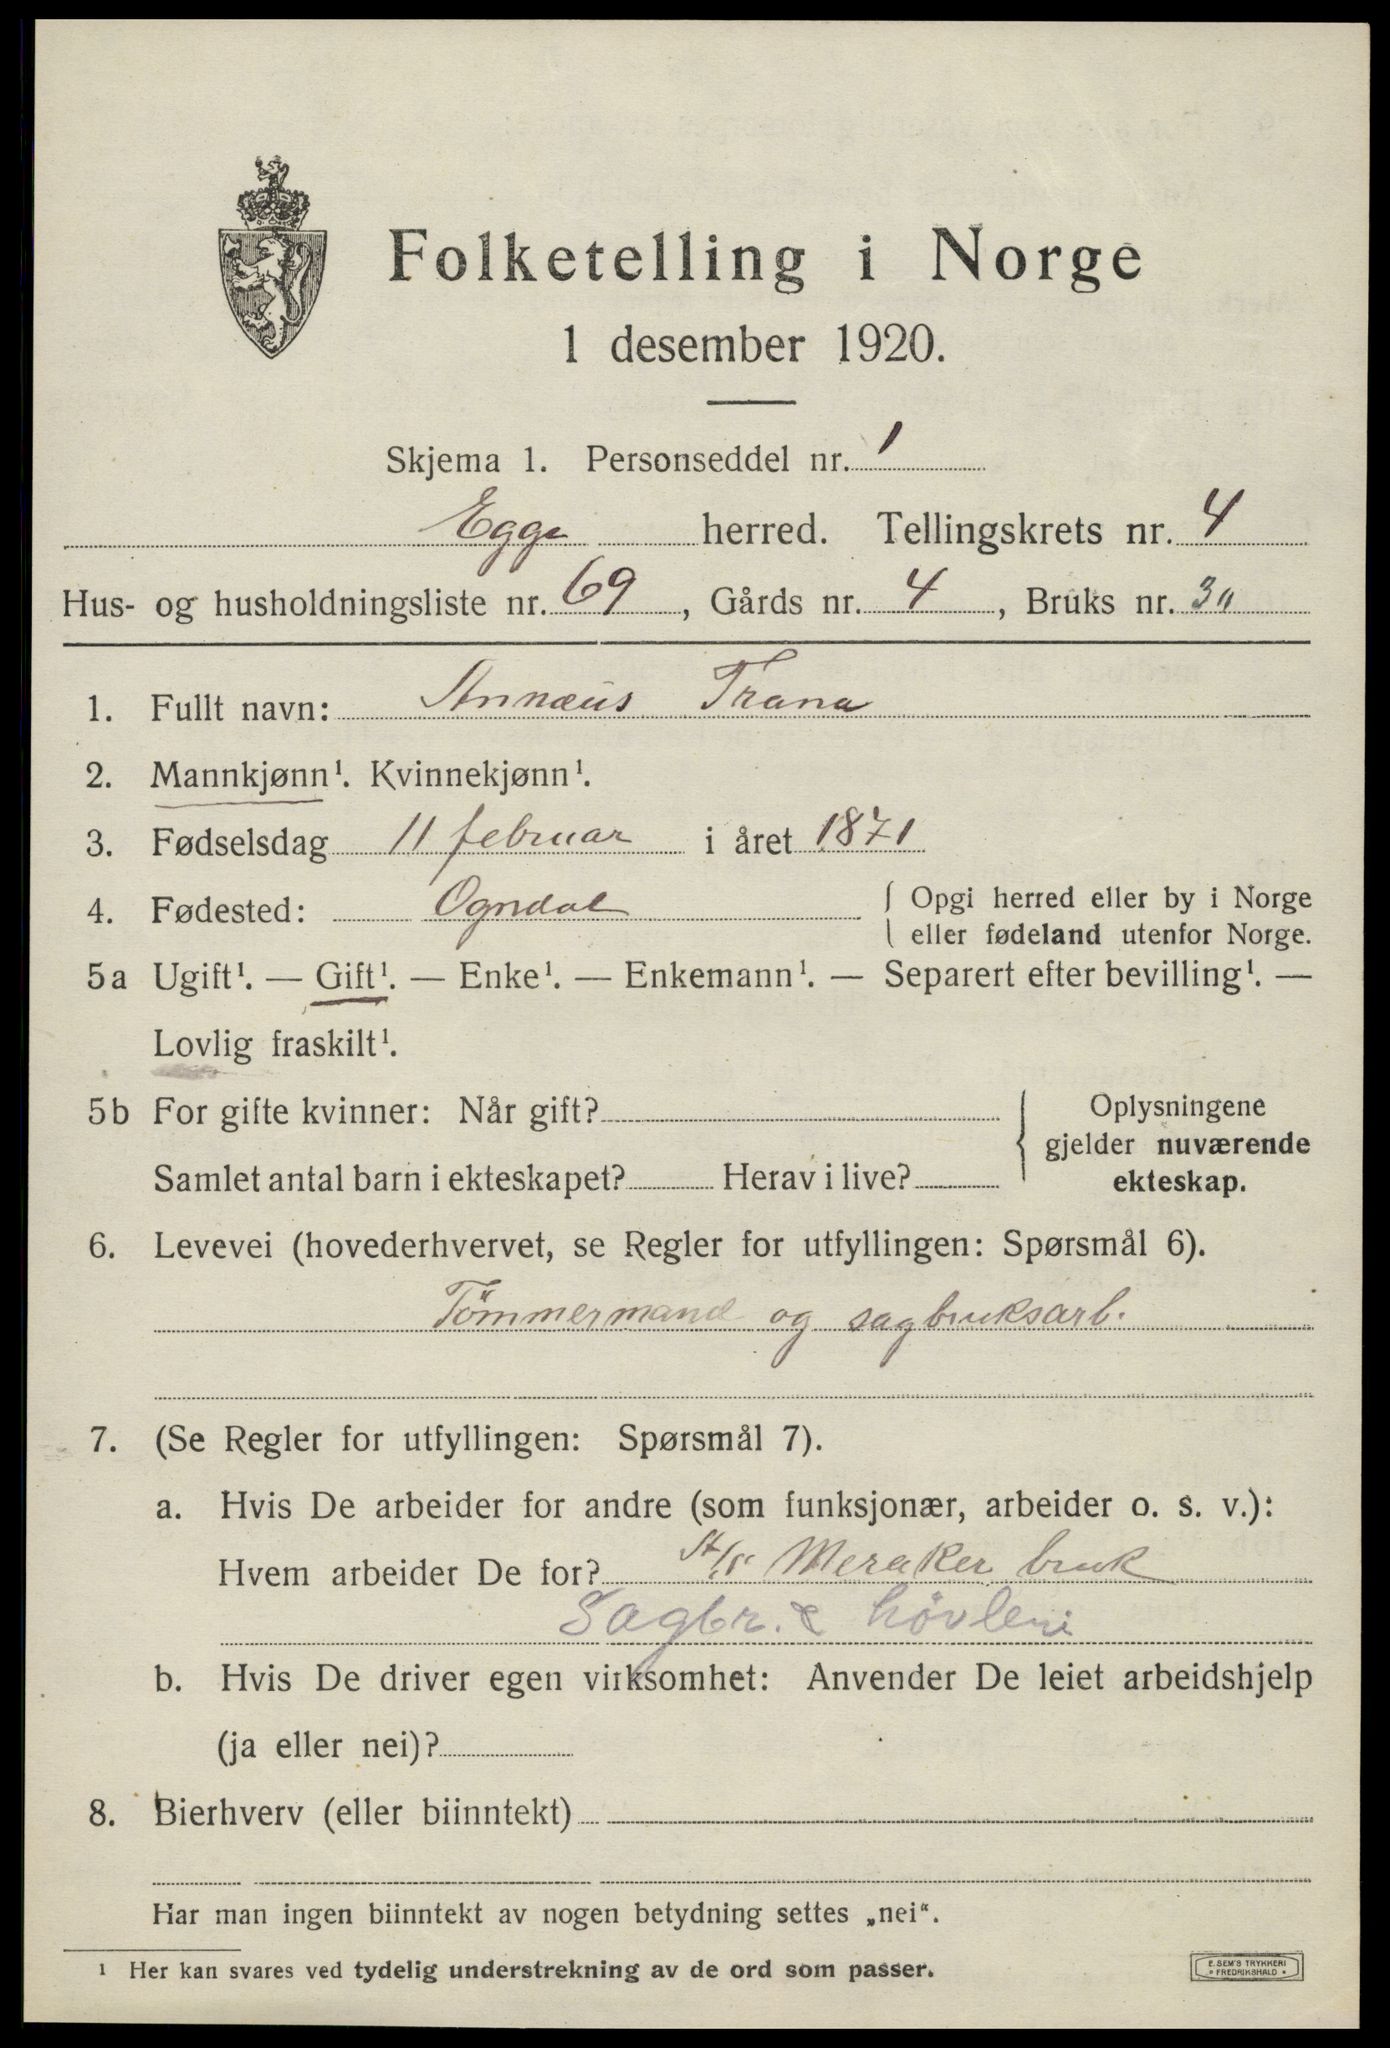 Folketelling i Norge
1 desember 1920.
Skjema 1. Personseddel nr. 1
Egge herred. Tellingskrets nr. 4
Hus- og husholdningsliste nr. 69, Gårds nr. 4, Bruks nr.
1. Fullt navn: Annæus Trana
2. Mannkjønn¹. Kvinnekjønn¹.
3. Fødselsdag 11 februar i året 1871
4. Fødested: Ogndal
{ Opgi herred eller by i Norge
eller fødeland utenfor Norge.
5a Ugift¹. — Gift¹. — Enke¹. — Enkemann¹. — Separert efter bevilling¹. —
Lovlig fraskilt¹.
5b For gifte kvinner: Når gift?
Samlet antal barn i ekteskapet? Herav i live?
{ Oplysningene
gjelder nuværende
ekteskap.
6. Levevei (hovederhvervet, se Regler for utfyllingen: Spørsmål 6).
Tömmermand og sagbruksarb.
7. (Se Regler for utfyllingen: Spørsmål 7).
a. Hvis De arbeider for andre (som funksjonær, arbeider o. s. v.):
Hvem arbeider De for? Meraker bruk
Sagbr. & hövleri
b. Hvis De driver egen virksomhet: Anvender De leiet arbeidshjelp
(ja eller nei)?
8. Bierhverv (eller biinntekt)
Har man ingen biinntekt av nogen betydning settes „nei“.
¹ Her kan svares ved tydelig understrekning av de ord som passer.
E. SEM'S TRYKKERI
• FREDRIKSHALD •